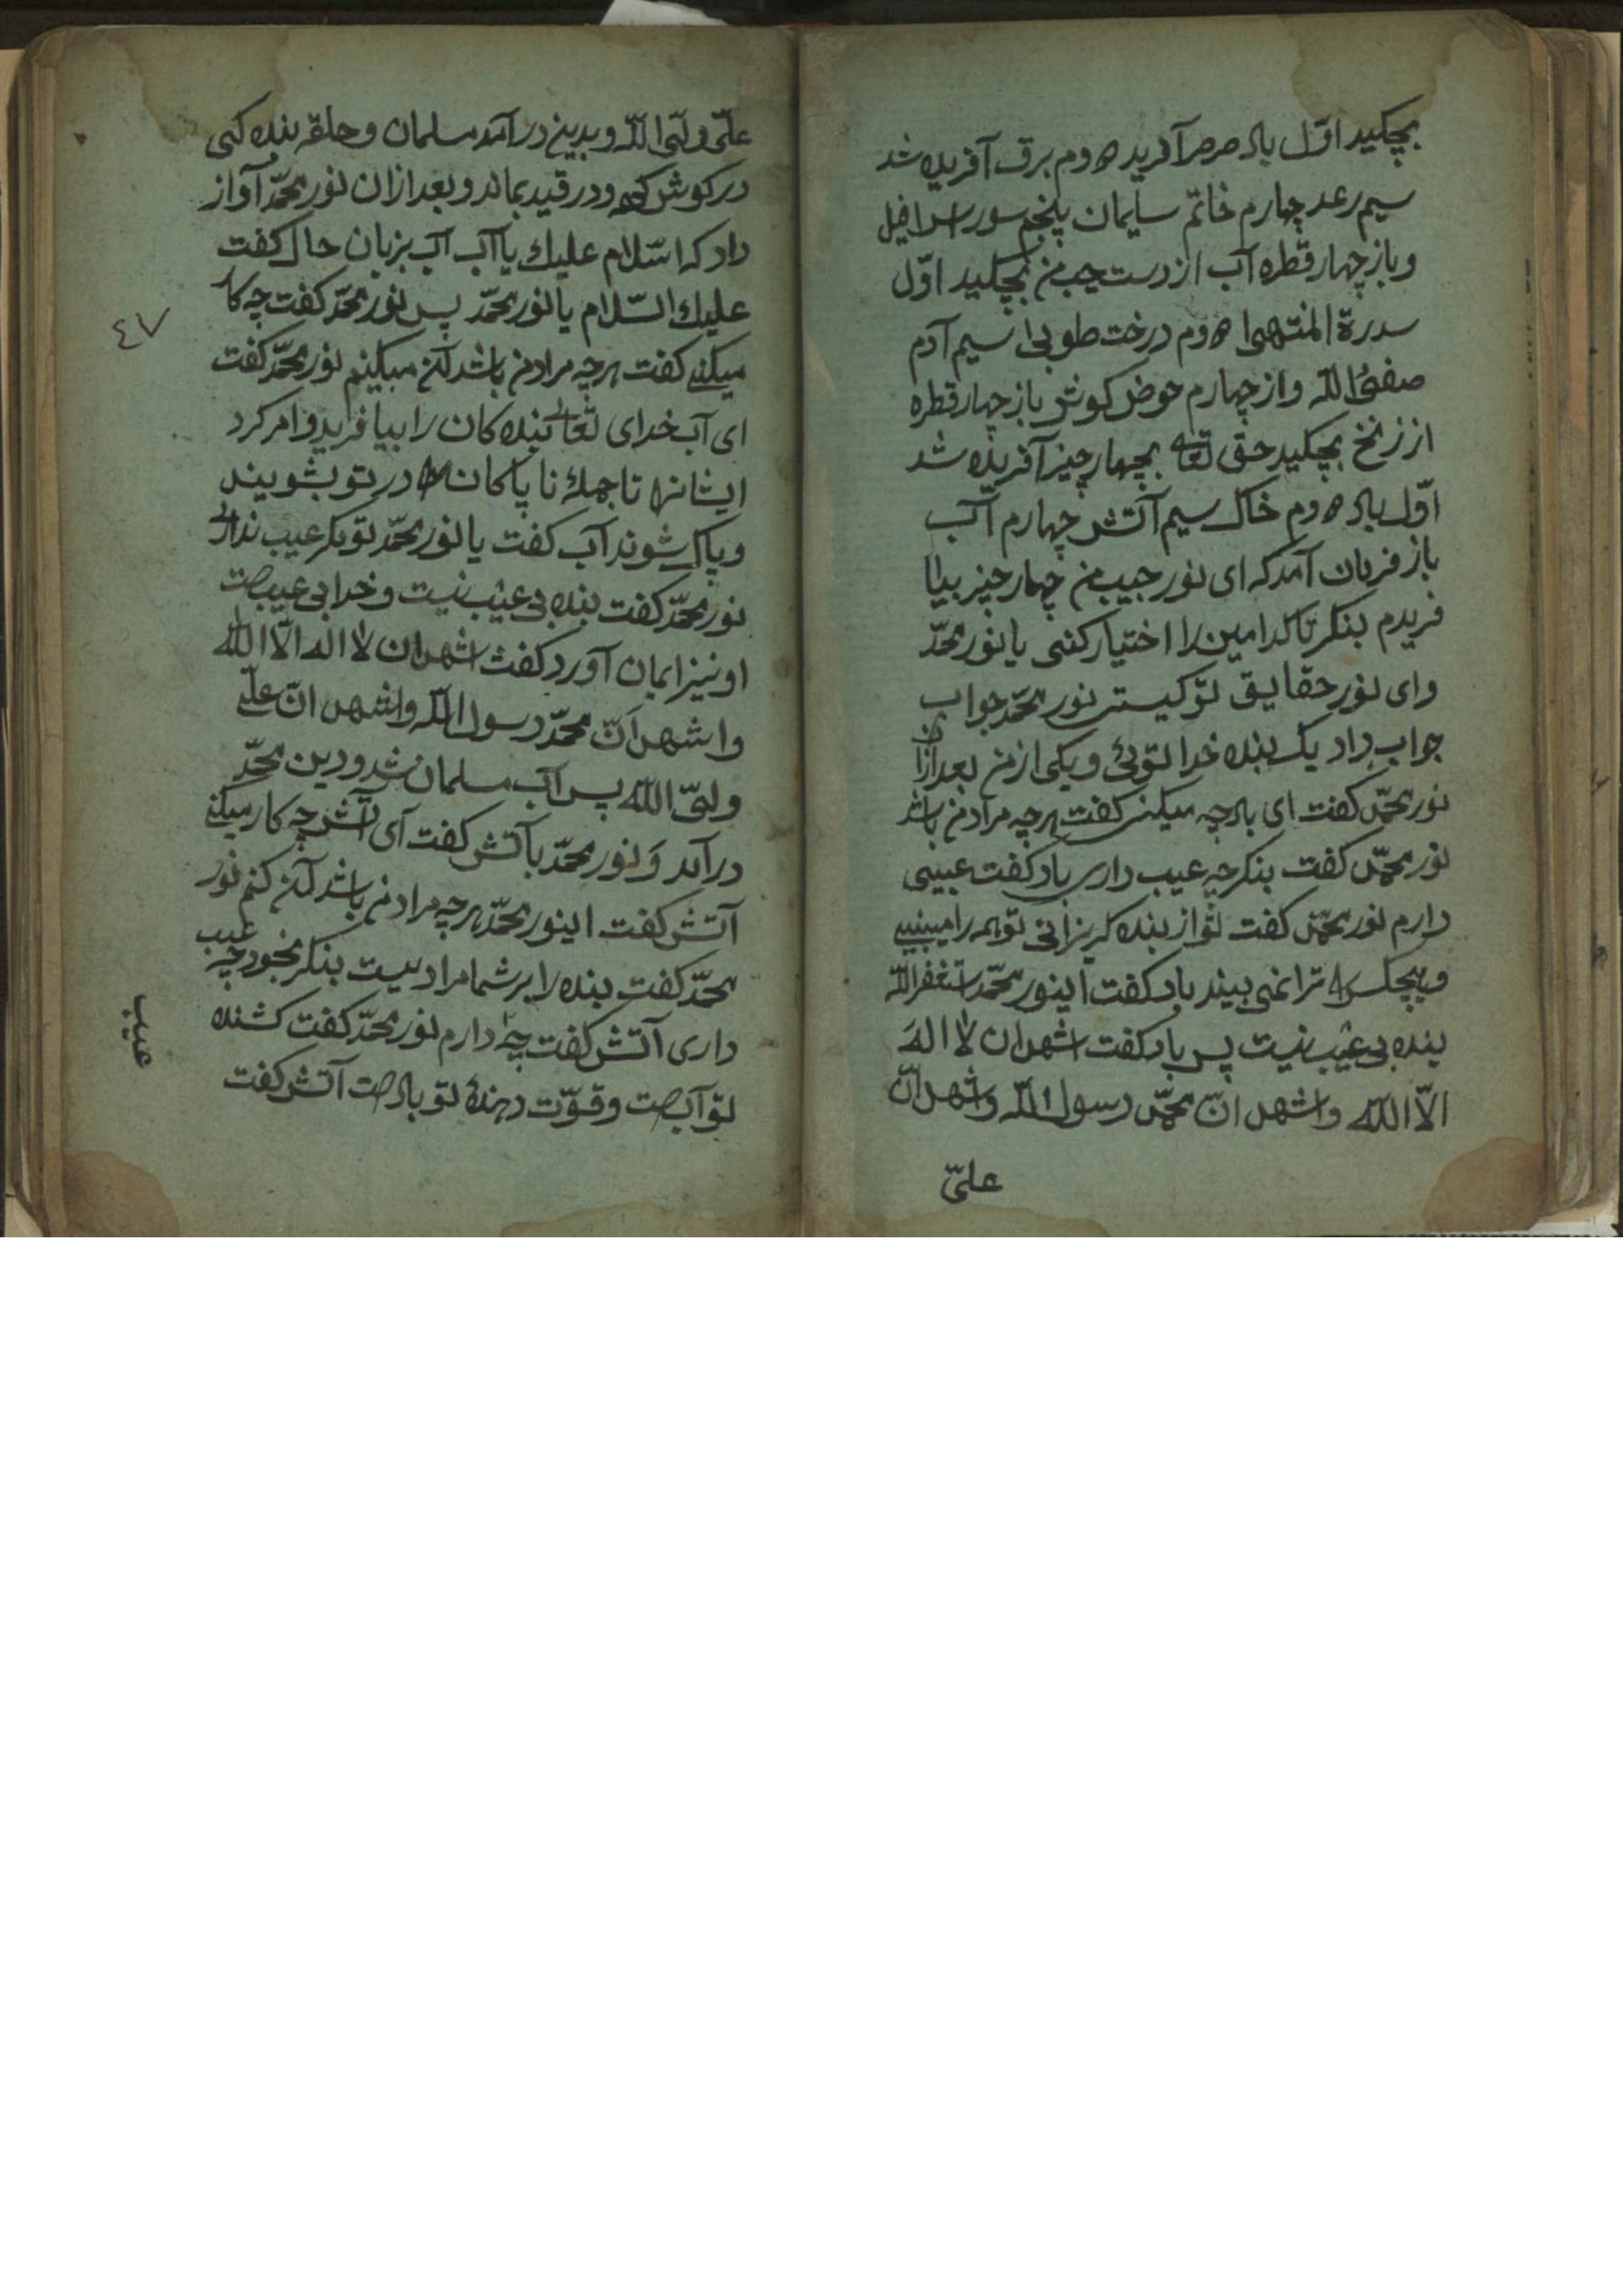 بچکید اوّل باد صرصر آفرید دوم برق آفریده شد
سیم رعد چهارم خاتم سلیمان پنجم سور اسرافیل
و باز چهار قطره آب از دست چپ من بچکید اوّل
سدرة المنتهی دوم درخت طوبی سیم آدم
صفیُ الله و از چهارم حوض کوثر باز چهار قطره
از زنخ بچکید حق تعا بچهار چیز آفریده شد
اوّل باد دوم خاک سیم آتش چهارم آب
باز فرمان آمد که ای نور حبیب من چهار چیز بیا
فریدم بنکر تا کدامین را اختیار کنی یا نور محمّد
وای نور حقایق تو کیستی نور محمّد جواب
جواب داد یک بنده خدا توئی و یکی از من بعد ازان
نور محمّد کفت ای باد چه میکنی کفت هرچه مراد من باشد
نور محمّد کفت بنکر چه عیب داری باد کفت عیبی
دارم نور محمّد کفت تو از بنده کریزانی تو همه را میبینی
و هیچکس ترا نمی بیند باد کفت اینور محمّد استغفر الله
بنده بی عیب نیست پس باد کفت اشهد ان لا الهَ
الاّ الله و اشهد انّ محمّد رسول الله و اشهد انّ
علیّ
علیّ ولیّ الله و بدین در آمد مسلمان و حلقه بنده کی
در کوش کرد و در قید بماند و بعد ازان نور محمّد آواز
داد که اسّلام علیك یا آب آب بزبان حال کفت
علیك السّلام یا نور محمّد پس نور محمّد کفت چه کار
میکنی کفت هرچه مراد من باشد آن میکنم نور محمّد کفت
ای آب خدای تعالی بنده کان را بیافرید و امر کرد
ایشانرا تا جمله ناپاکان در تو بشویند
و پاک شوند آب کفت یا نور محمّد تو مکر عیب نداری
نور محمّد کفت بنده بی عیب نیست و خدا بی عیبست
او نیز ایمان آورد کفت اشهد ان لا اله الاّ الله
و اشهد اَنّ محمّد رسول الله و اشهد انّ علی
ولیّ الله پس آب مسلمان شد و دین محمّد
در آمد وَ نور محمّد با آتش کفت آی آتش چه کار میکنی
آتش کفت اینور محمّد هرچه مراد من باشد آن کنم نور
محمّد کفت بنده را بر شما مراد نیست بنکر بخود چه عیب
داری آتش کفت چه دارم نور محمّد کفت کشنده
تو آبست و قوّت دهندهٔ تو بادست آتش کفت
٤٧
عیب